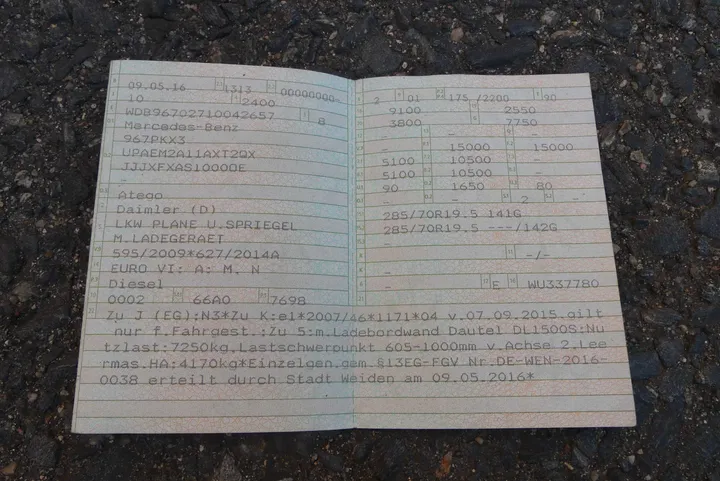 09.05.16 1313 00000000-
10 2400
WDB96702710042657 8
Mercedes-Benz
967PKX3
UPAEM2A11AXT2QX
JJJXFXAS10000E
-
Atego
Daimler (D)
LKW PLANE U.SPRIEGEL
M.LADEGERAET
595/2009*627/2014A
EURO VI; A; M, N
Diesel
0002 66A0 7698
2 01 175 /2200 90
9100 2550
3800 7750
- - -
- 15000 15000
5100 10500 -
5100 10500 -
90 1650 80
- - 2 -
285/70R19.5 141G
285/70R19.5 ---/142G
-
- -/-
-
- E WU337780
-
Zu J (EG):N3*Zu K:e1*2007/46*1171*04 v.07.09.2015.gilt
nur f.Fahrgest.;Zu 5:m.Ladebordwand Dautel DL1500S:Nu
tzlast:7250kg.Lastschwerpunkt 605-1000mm v.Achse 2.Lee
rmas.HA:4170kg*Einzelgen.gem.§13EG-FGV Nr.DE-WEN-2016-
0038 erteilt durch Stadt Weiden am 09.05.2016*